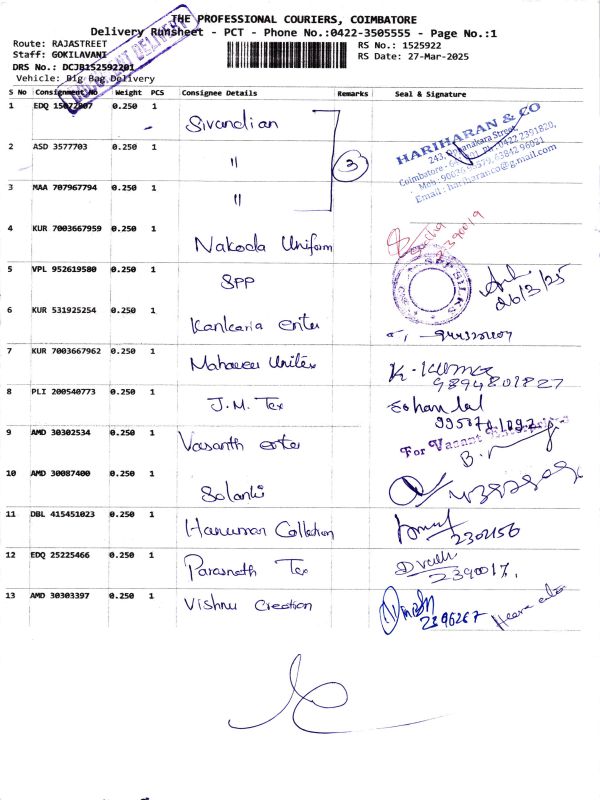 THE PROFESSIONAL COURIERS, COIMBATORE
Delivery Runsheet - PCT - Phone No.:0422-3505555 - Page No.:1
Route: RAJASTREET RS No.: 1525922
Staff: GOKILAVANI RS Date: 27-Mar-2025
DRS No.: DCJB152592201
Vehicle: Big Bag Delivery
S No Consignment No Weight PCS Consignee Details Remarks Seal & Signature
1 EDQ 0.250 1 Sivandian
2 ASD 3577703 0.250 1 "
3 MAA 707967794 0.250 1 "
3
HARIHARAN & CO
Coimbatore
Email: hariharanco@gmail.com
4 KUR 7003667959 0.250 1 Nakoda Uniform
5 VPL 952619580 0.250 1 SPP
SPP SILKS
26/3/25
6 KUR 531925254 0.250 1 Kankaria enter
7 KUR 7003667962 0.250 1 Mahaveer Unitex
K. Kumar
9894801827
8 PLI 200540773 0.250 1 J.M. Tex
Sohan lal
9 AMD 30302534 0.250 1 Vasanth enter
For Vasant Enterprises
10 AMD 30087400 0.250 1 Solanki
11 DBL 415451023 0.250 1 Hanuman Collection
2302156
12 EDQ 25225466 0.250 1 Parasnath Tex
2390017.
13 AMD 30303397 0.250 1 Vishnu Creation
Dinesh
2396267